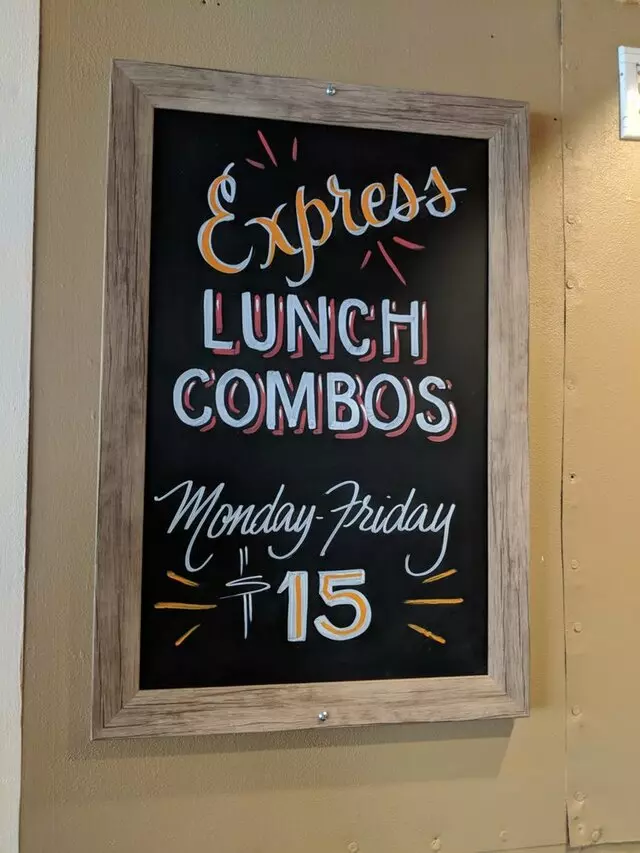 Express
LUNCH
COMBOS
Monday-Friday
$15